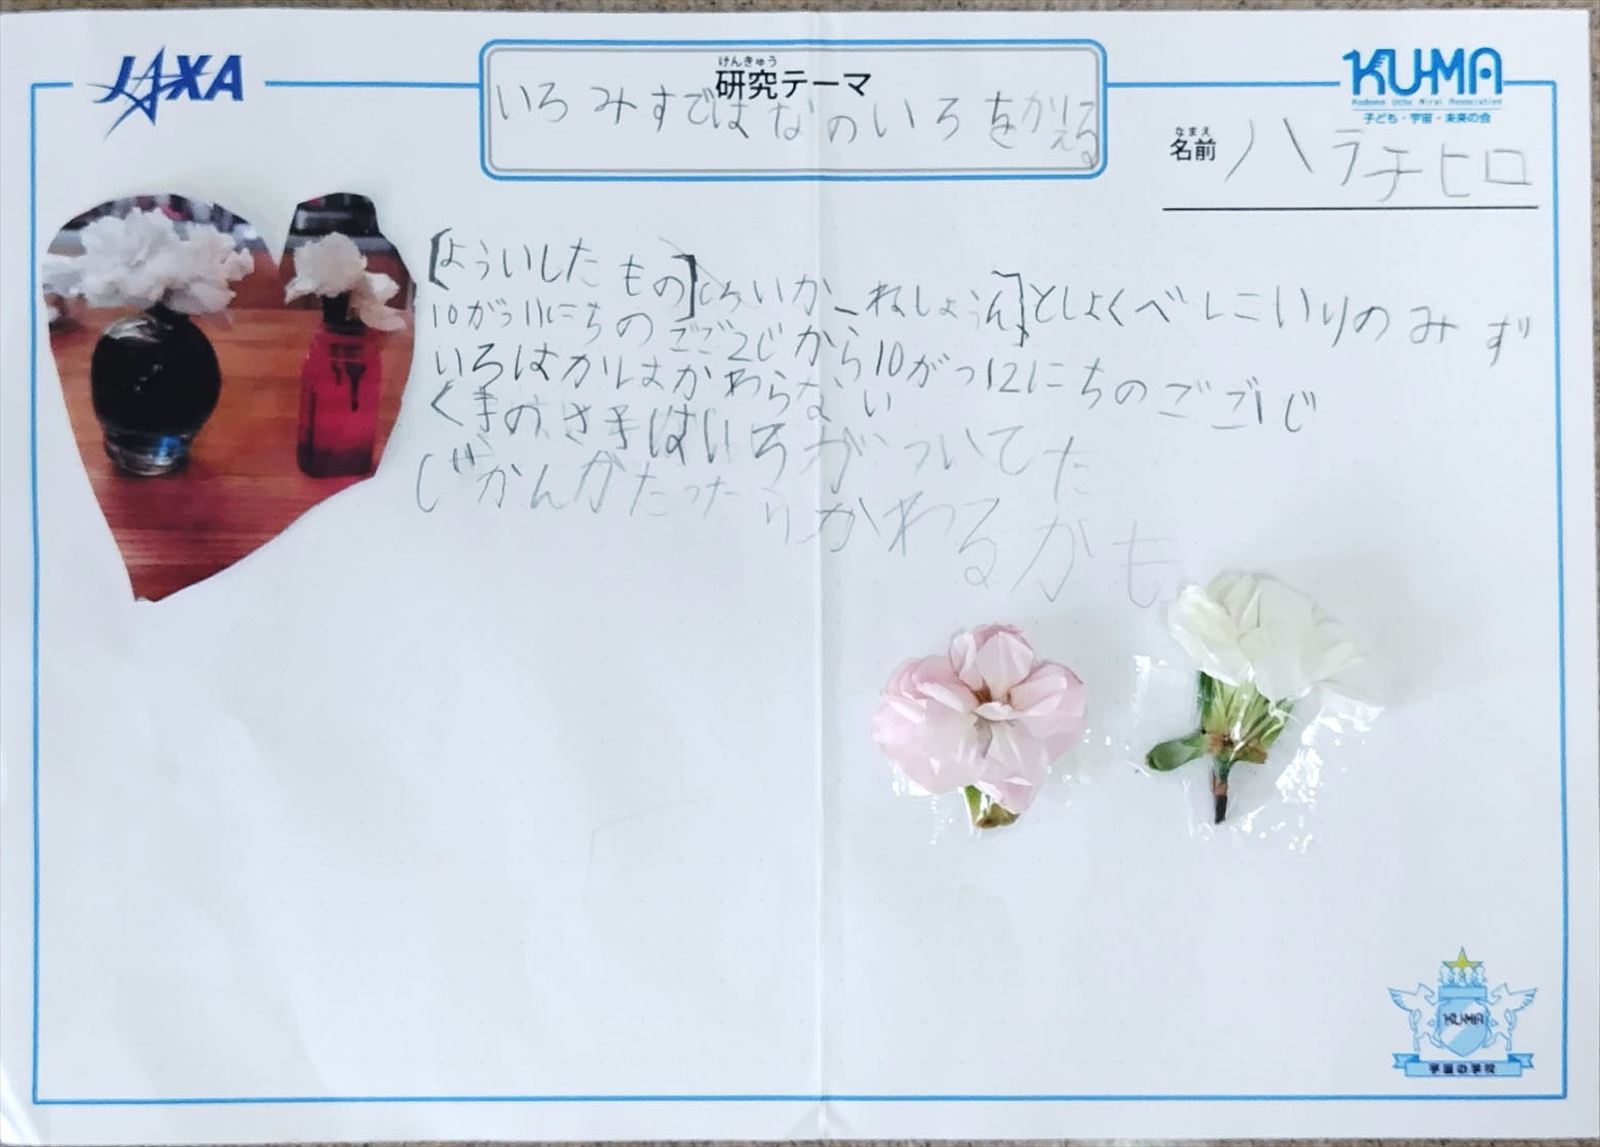 JAXA
けんきゅう
研究テーマ
いろみずではなのいろをかえる
KUMA
Kodomo Uchu Mirai Association
子ども・宇宙・未来の会
なまえ
名前 ハラチヒロ
[よういしたもの]しろいかーねしょん]としょくべにこいりのみず
10がつ11にちのごご2じから10がつ12にちのごご1じ
いろは かわらない
くきの さきはいろがついてた
じかんがたったらかわるかも
KUMA
宇宙の学校